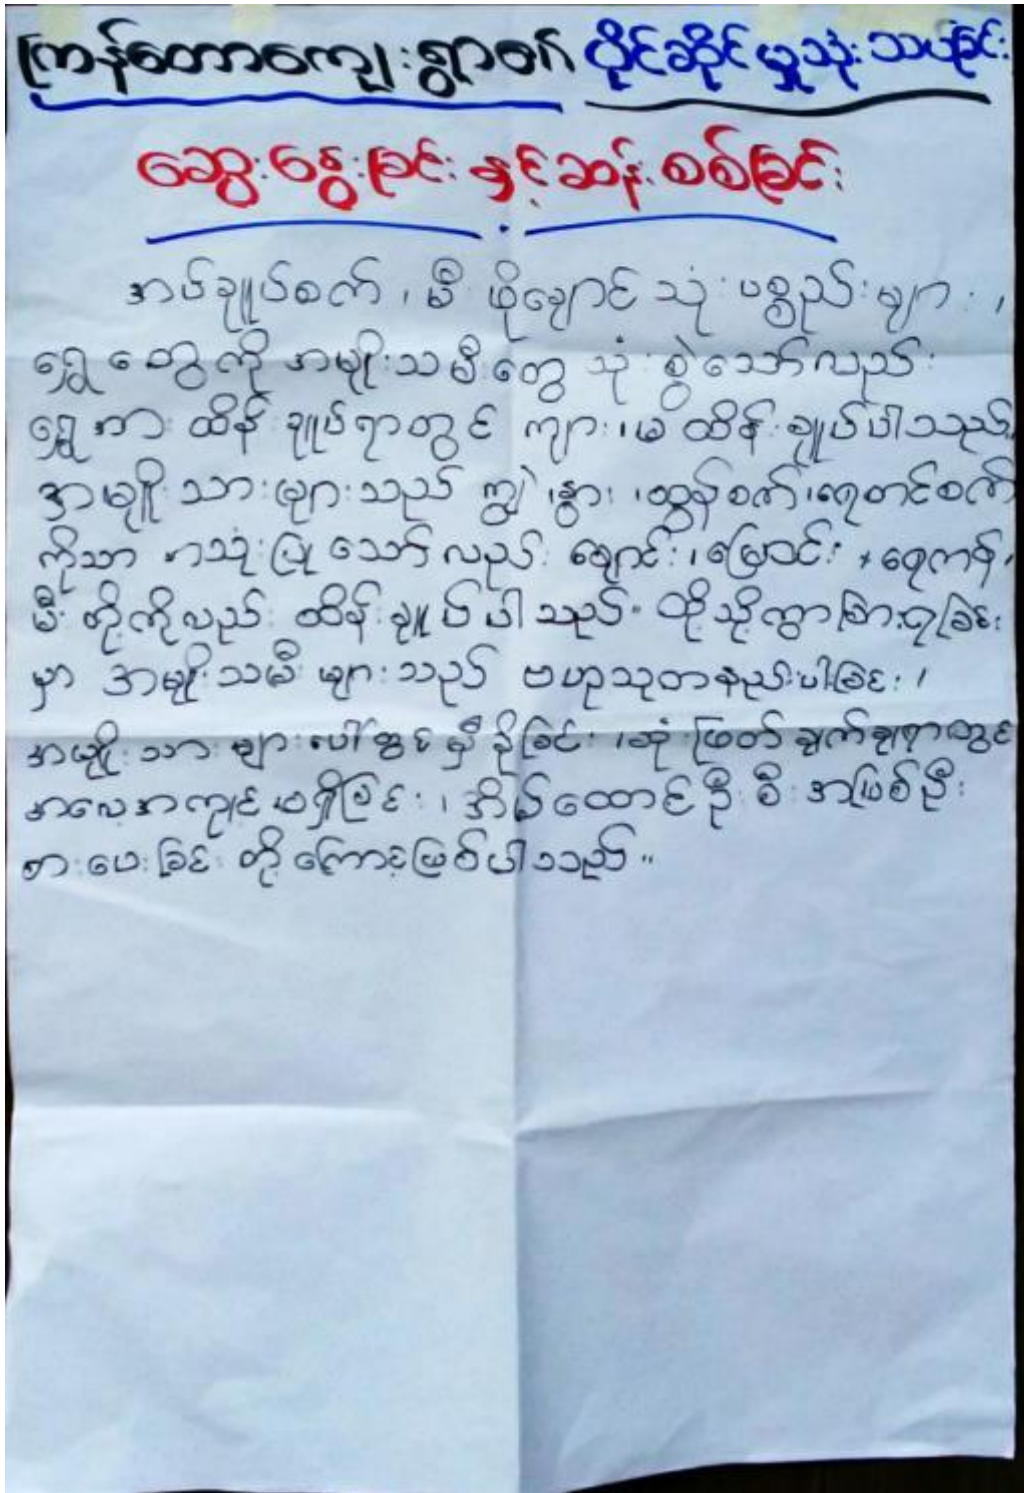 ကြံခန်တောကျေးရွာ၏ ပိုင်ဆိုင်မှုသုံးသပ်ခြင်း
ဆွေးနွေးခြင်းနှင့်ဆန်းစစ်ခြင်း
အပ်ချုပ်စက်၊ မီးဖိုချောင်သုံးပစ္စည်းများ၊
ရွှေတွေကို အမျိုးသမီးတွေ သုံးစွဲသော်လည်း
ရွှေအား ထိန်းချုပ်ရာတွင် ကျား၊မ ထိန်းချုပ်ပါသည်
အမျိုးသားများသည် ကျွဲ၊နွား၊ထွန်စက်၊ရေတင်စက်
ကိုသာ အသုံးပြုသော်လည်း ချောင်း၊မြောင်း၊ရေကန်၊
မီးတို့ကိုလည်း ထိန်းချုပ်ပါသည်။ ထိုသို့ကွာခြားရခြင်း
မှာ အမျိုးသမီးများသည် ဗဟုသုတနည်းပါးခြင်း၊
အမျိုးသားများပေါ်တွင်မှီခိုခြင်း၊ဆုံးဖြတ်ချက်ချရာတွင်
အလေ့အကျင့်မရှိခြင်း၊ အိမ်ထောင်ဦးစီးအဖြစ်ဦး
စားပေးခြင်းတို့ကြောင့်ဖြစ်ပါသည်။